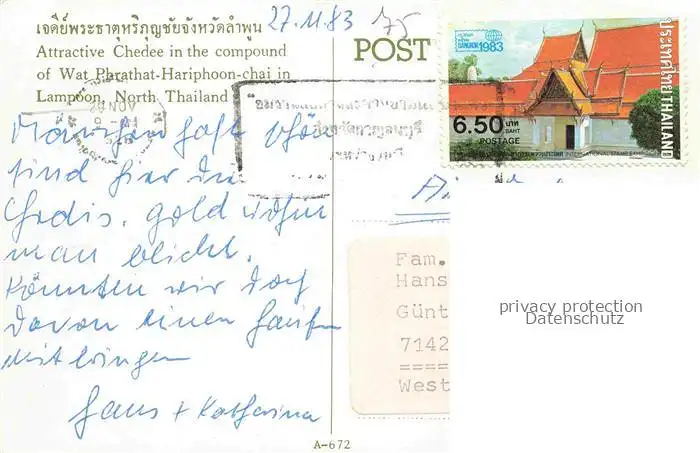 เจดีย์พระธาตุหริภุญชัยจังหวัดลำพูน
Attractive Chedee in the compound
of Wat Phrathat-Hariphoon-chai in
Lampoon, North Thailand
27.11.83
75
POST
BANGKOK 1983
6.50 บาท
BAHT
POSTAGE
ประเทศไทย THAILAND
INTERNATIONAL STAMP EXHIBITION
NOV
Märchenhaft schön
sind hier die
Chedis. Gold wohin
man blickt.
Könnten wir doch
davon einen Haufen
mitbringen
Hans + Katharina
Fam.
Hans
Günt
7142
====
West
privacy protection
Datenschutz
A-672